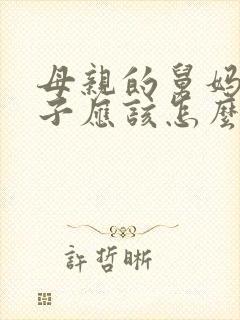 母親的舅媽
子應該怎麼
許哲晰